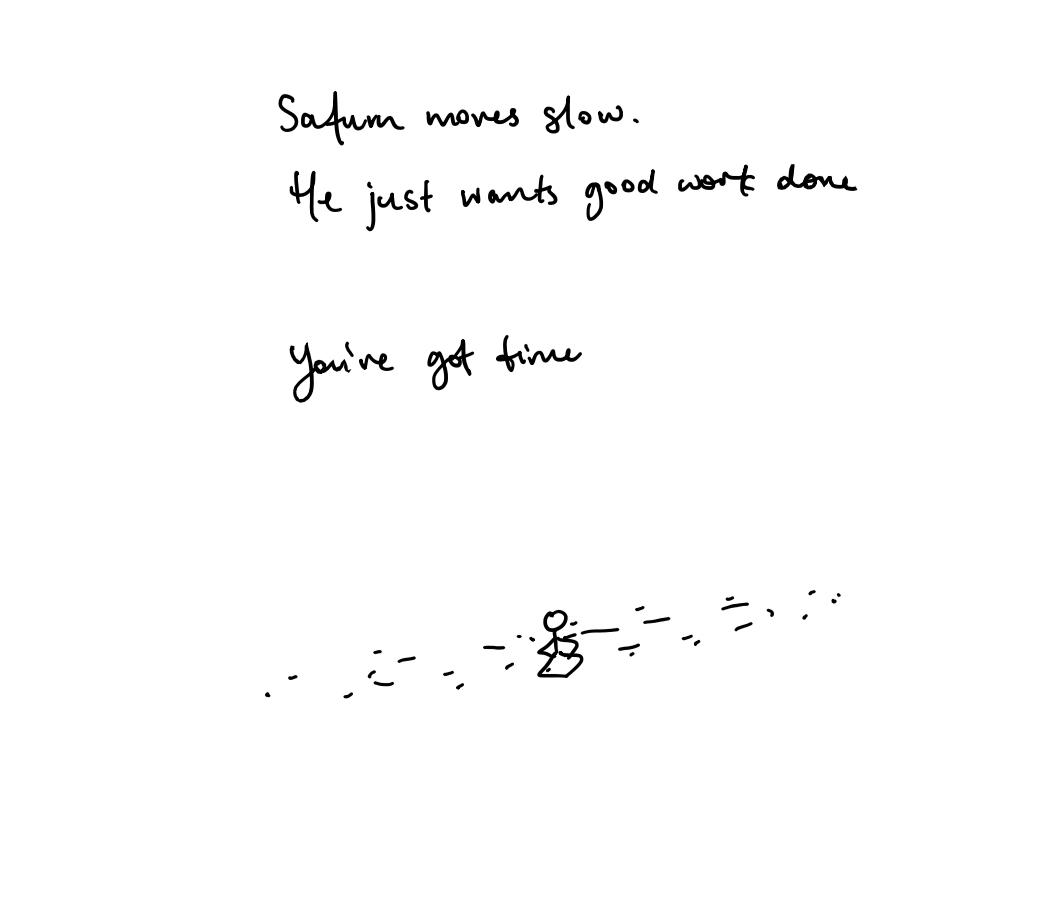 Saturn moves slow.
He just wants good work done
You've got time